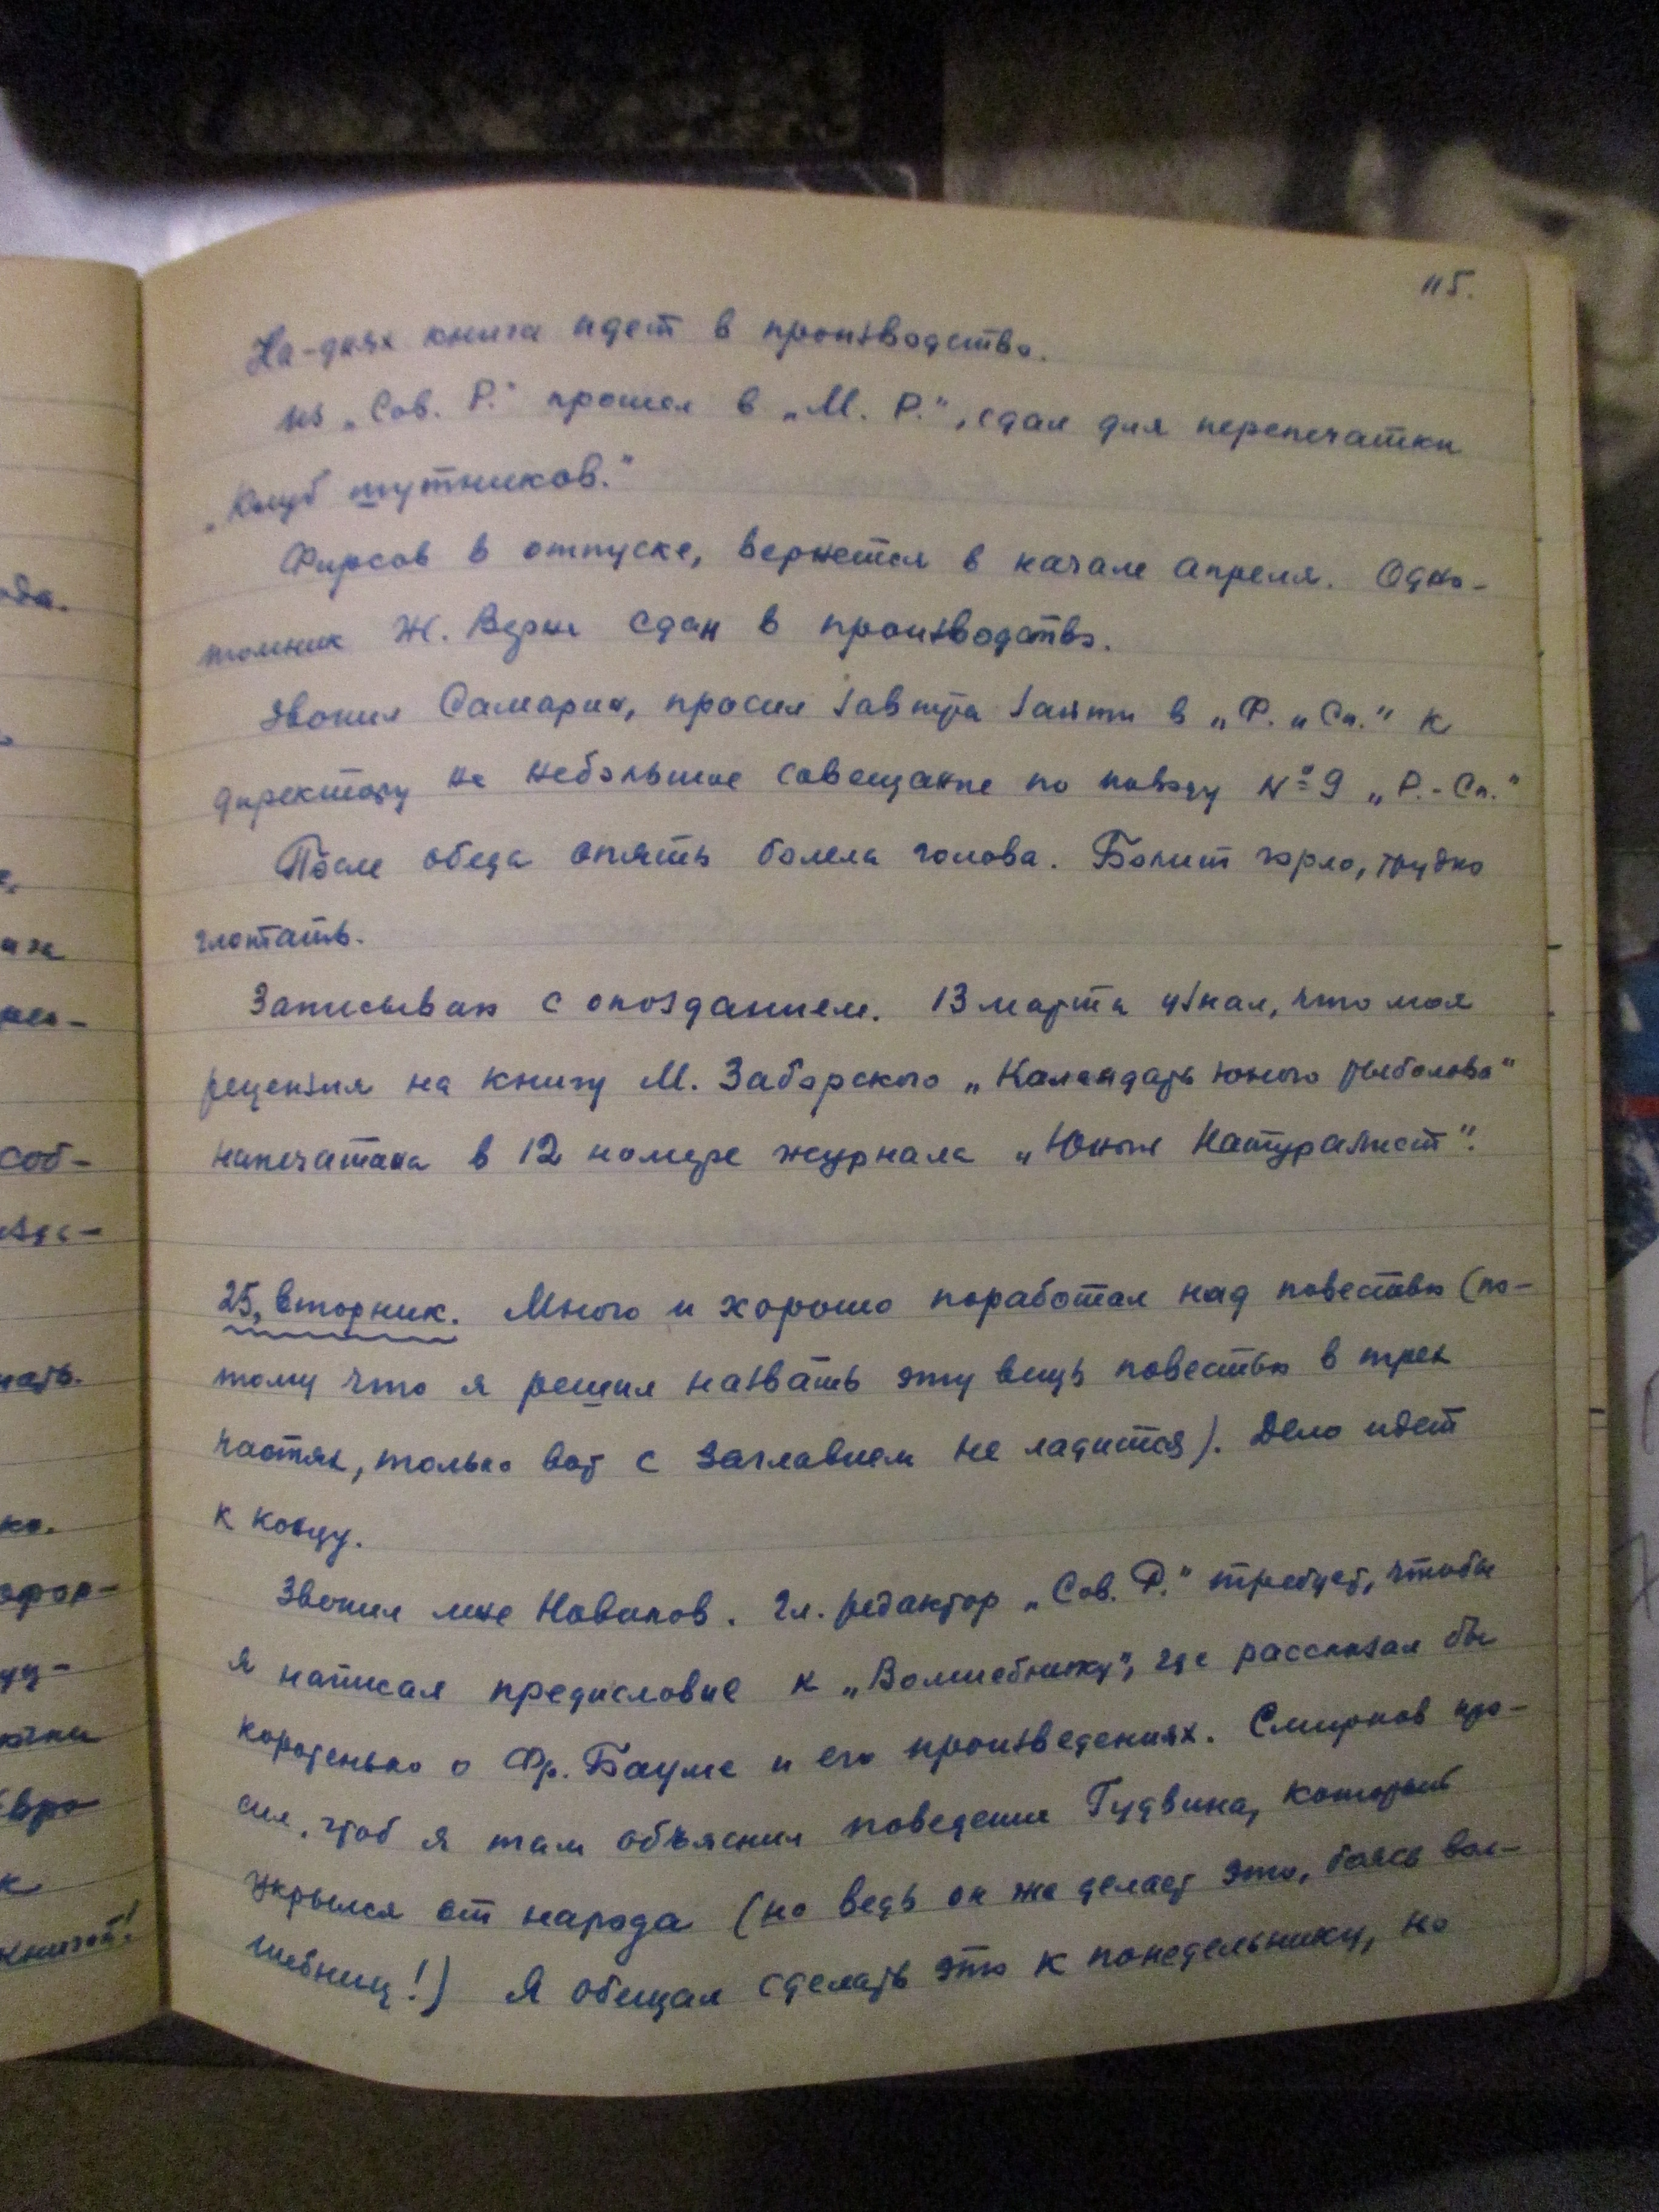 115.
На-днях книга идет в производство.
Из „Сов. Р.“ прошел в „М. Р.“, сдал для перепечатки
„Клуб шутников.“
Фирсов в отпуске, вернется в начале апреля. Одно-
томник Ж. Верна сдан в производство.
Звонил Самарин, просил завтра зайти в „Ф. и Сп.“ к
директору на небольшое совещание по поводу № 9 „Р.-Сп.“
После обеда опять болела голова. Болит горло, трудно
глотать.
Записываю с опозданием. 13 марта узнал, что моя
рецензия на книгу М. Заборского „Календарь юного рыболова“
напечатана в 12 номере журнала „Юный Натуралист“.
25, вторник. Много и хорошо поработал над повестью (по-
тому что я решил назвать эту вещь повестью в трех
частях, только вот с заглавием не ладится). Дело идет
к концу.
Звонил мне Новиков. Гл. редактор „Сов. Р.“ требует, чтобы
я написал предисловие к „Волшебнику“, где рассказал бы
коротенько о Фр. Бауме и его произведениях. Смирнов про-
сил, чтоб я там объяснил поведение Гудвина, который
укрылся от народа (но ведь он же делает это, боясь вол-
шебниц!) Я обещал сделать это к понедельнику, но
ода.
соб-
ко.
ути
евро
к
книгой!